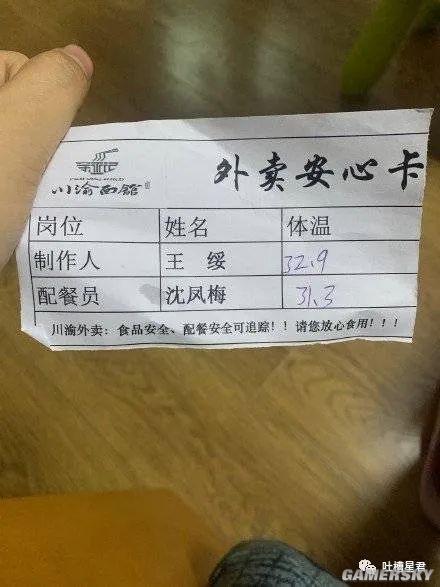 川渝面館
外卖安心卡
岗位 姓名 体温
制作人 王 绥 32.9
配餐员 沈凤梅 31.3
川渝外卖：食品安全、配餐安全可追踪！！请您放心食用！！！
吐槽星君
GAMERSKY